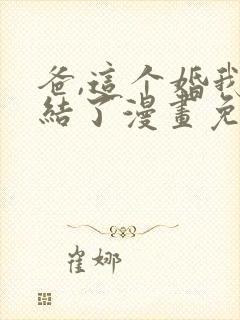 爸,這个婚我
結了漫畫免
崔娜